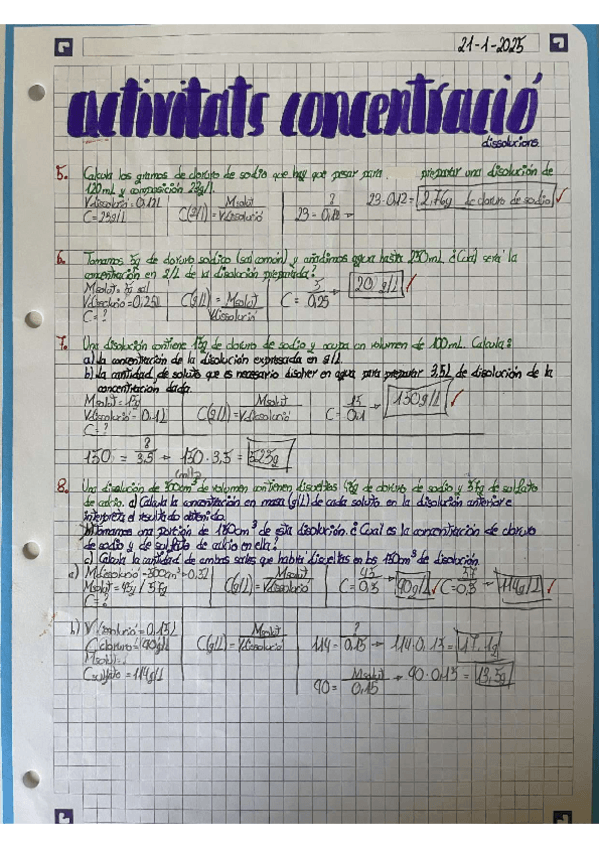 21-1-2025
activitats concentració
dissolucions
5. Calcula los gramos de cloruro de sodio que hay que pesar para preparar una disolución de
120mL y composición 23g/L.
Vdissolució = 0,12L
C = 23g/L
C(g/L) = Msolut / Vdissolució
23 = ? / 0,12 →
23·0,12 = 2,76g de cloruro de sodio ✓
6. Tomamos 5g de cloruro sódico (sal común) y añadimos agua hasta 250mL ¿Cuál será la
concentración en g/L de la disolución preparada?
Msolut = 5g sal
Vdissolució = 0,25L
C = ?
C(g/L) = Msolut / Vdissolució
C = 5 / 0,25 → 20 g/L ✓
7. Una disolución contiene 15g de cloruro de sodio y ocupa un volumen de 100mL. Calcula:
a) la concentración de la disolución expresada en g/L.
b) la cantidad de soluto que es necesario disolver en agua para preparar 3,5L de disolución de la
concentración dada.
Msolut = 15g
Vdissolució = 0,1L
C = ?
C(g/L) = Msolut / Vdissolució
C = 15 / 0,1 → 150g/L ✓
150 = ? / 3,5 → 150·3,5 = 525g
8. Una disolución de 500cm³ de volumen contienen disueltas 45g de cloruro de sodio y 57g de sulfato
de calcio. a) Calcula la concentración en masa (g/L) de cada soluto en la disolución anterior e
interpreta el resultado obtenido.
b) Tomamos una porción de 150cm³ de esta disolución. ¿Cual es la concentración de cloruro
de sodio y de sulfato de calcio en ella?
c) Calcula la cantidad de ambas sales que habrá disueltas en los 150cm³ de disolución.
a)
Msolut = 45g / 57g
C = ?
C(g/L) = Msolut / Vdissolució
C = 45 / 0,5 → 90g/L ✓
C = 57 / 0,5 → 114g/L ✓
b) Vdissolució = 0,15L
Ccloruro = 90g/L
Msolut = ?
Csulfato = 114g/L
C(g/L) = Msolut / Vdissolució
114 = ? / 0,15 → 114·0,15 = 17,1g
90 = Msolut / 0,15 → 90·0,15 = 13,5g